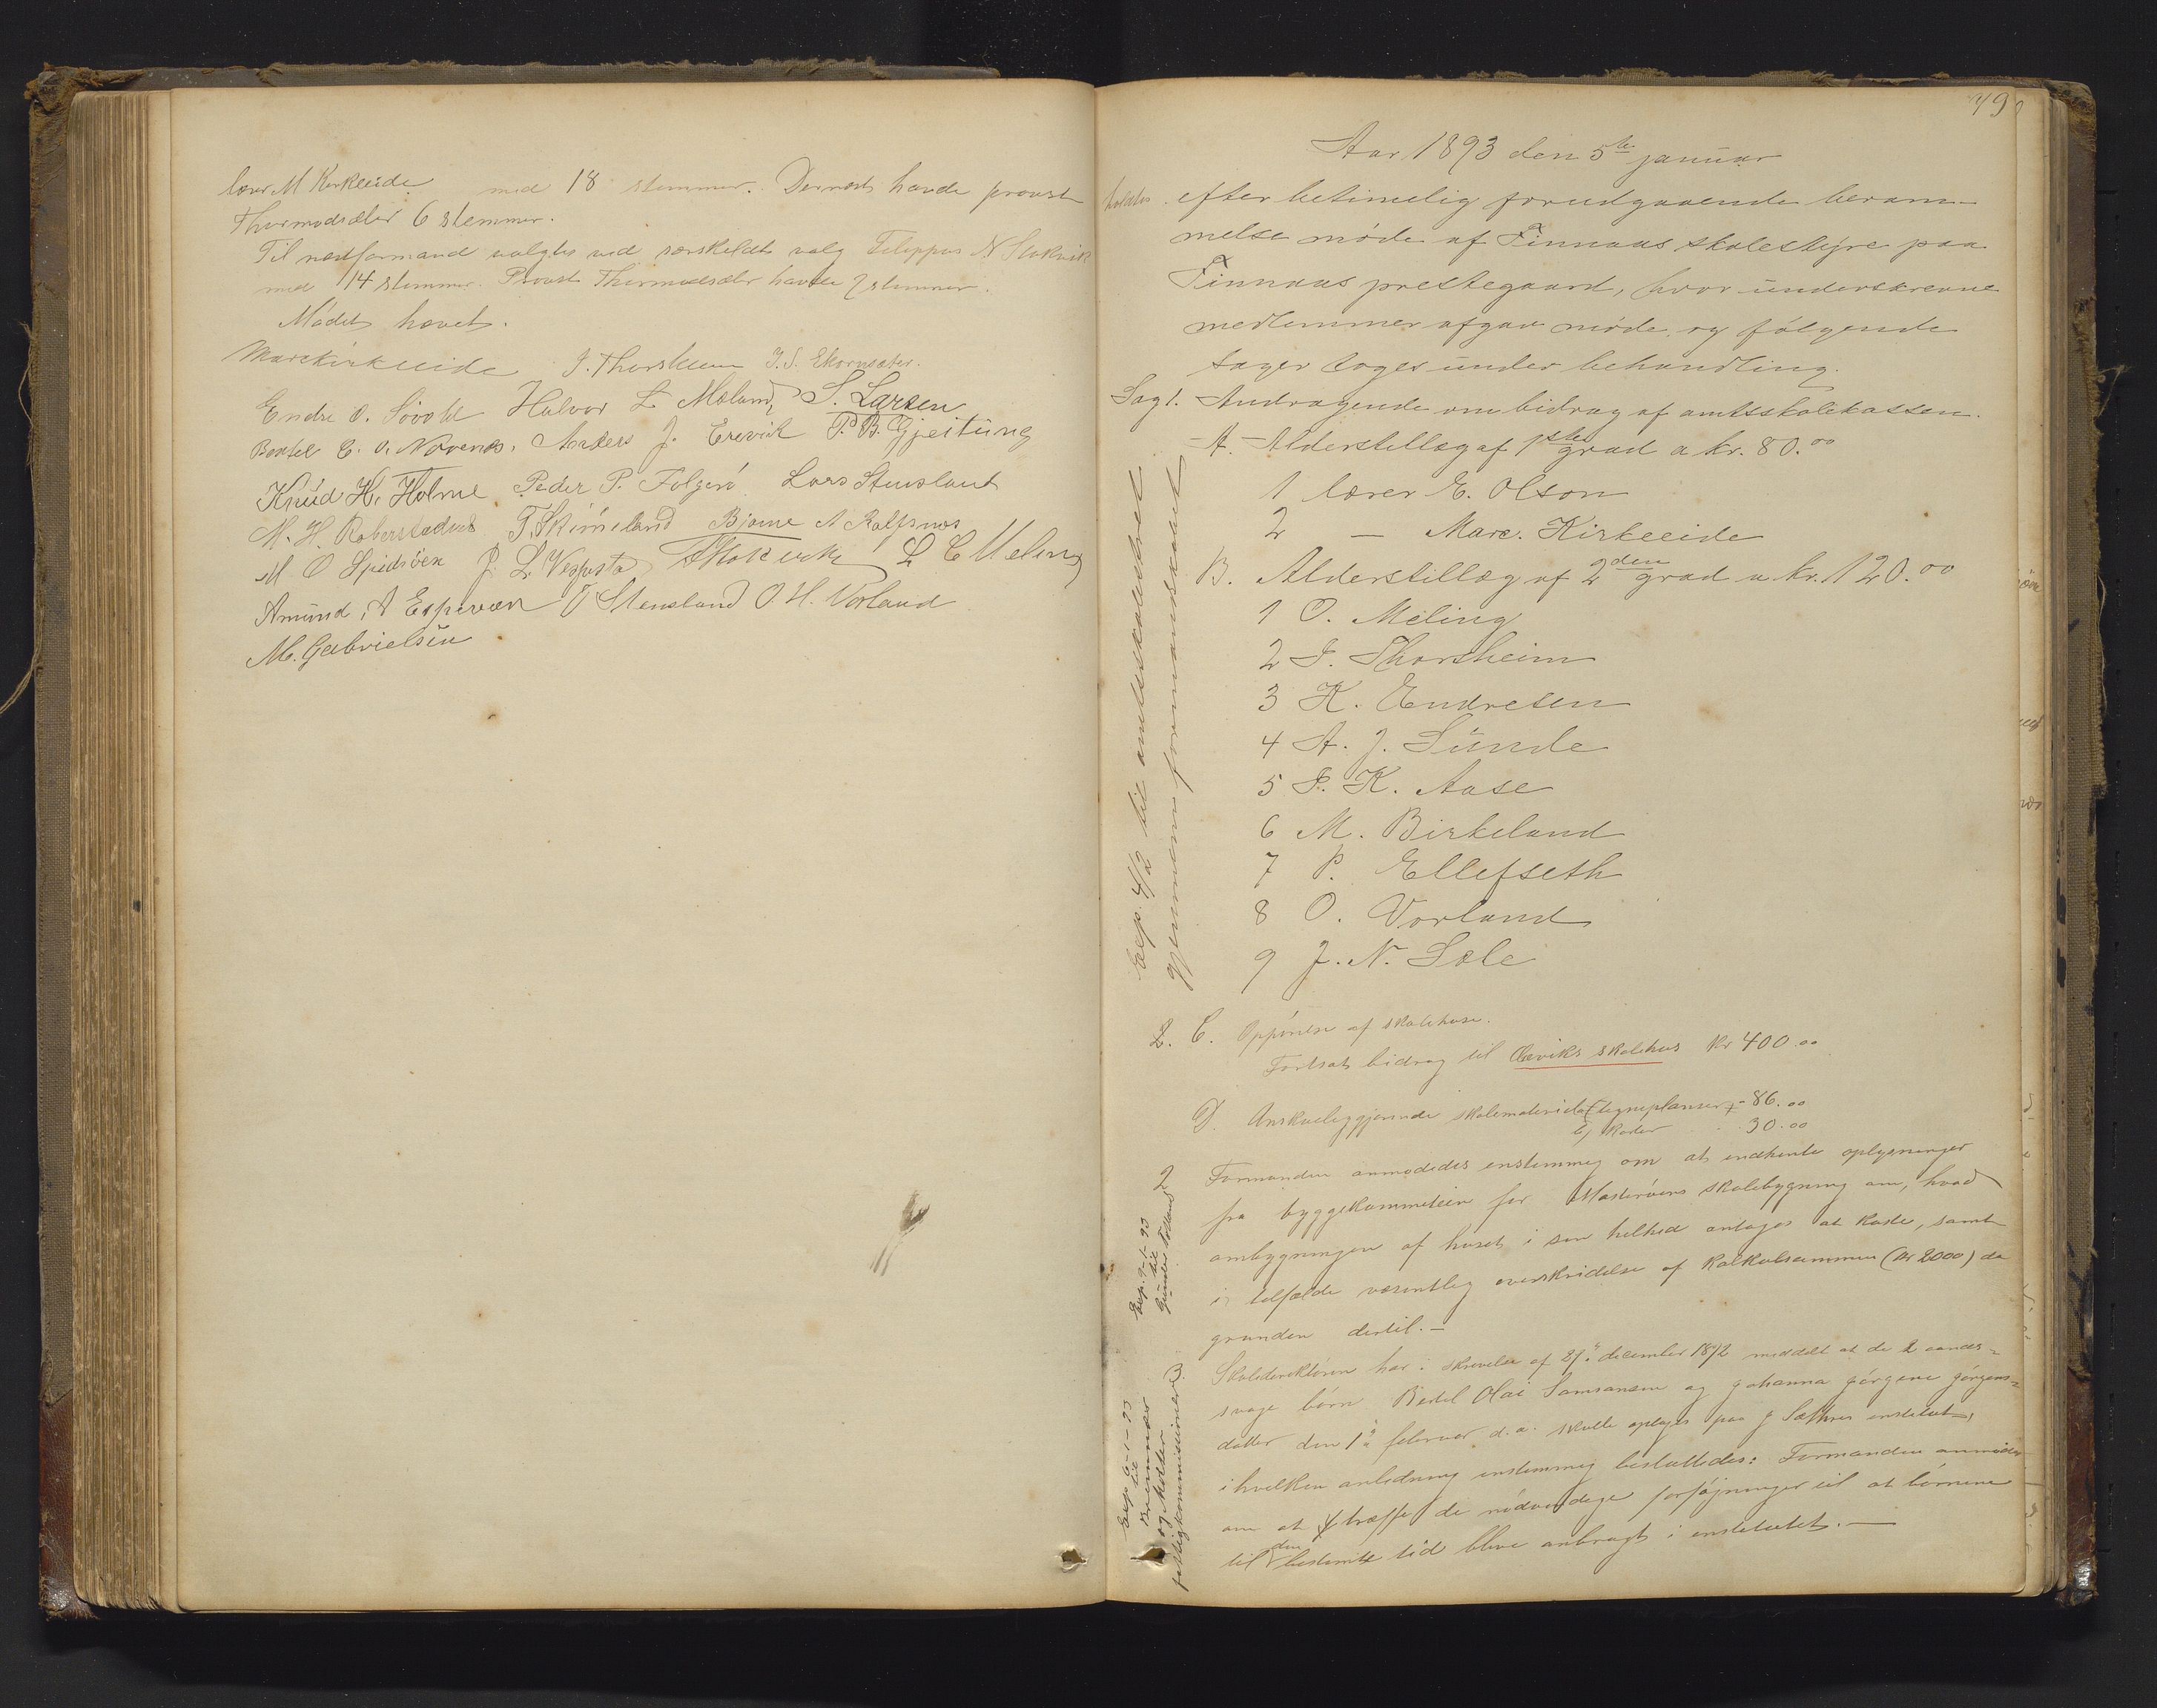 lærer M Kirkeeide med 18 stemmer. Dernæst havde provst
Thormodsæter 6 stemmer.
Til næstformand valgtes ved særskildt valg Filippus N Stokvik
med 14 stemmer. Provst Thormodsæter havde 7 stemmer.
Mödet hævet.
Marc Kirkeeide J. Thorsheim J. S. Ekornsæter.
Endre O. Sövold Halvor L. Mæland, S. Larsen
Bertel E. O. Norenæs. Anders J. Erevik P. B. Gjeitung
Knud H. Holme Peder P. Folgerö Lars Stensland
M. H. Roberstadnes T. Skimeland Bjarne A Rolfsnæs
M O Spidsöen P. L. Vespestad FStokvik L E Meling
Amund A Espevær T Stensland O. H. Vorland
M. Gabrielsen
49
Aar 1893 den 5te januar
holdtes efter betimelig forudgaaende beram-
melse møde af Finnaas skolestyre paa
Finnaas prestegaard, hvor underskrevne
medlemmer afgav møde og følgende
sager toges under behandling.
Sag 1. Andragende om bidrag af amtsskolekassen.
A. Alderstillæg af 1ste grad a kr. 80.00
1 lærer E. Olson
2 — Marc. Kirkeeide
B. Alderstillæg af 2den grad a kr. 120.00
1 O. Meling
2 J. Thorsheim
3 K. Endresen
4 A. J. Sunde
5 J. K. Aase
6 M. Birkeland
7 P. Ellefseth
8 O. Vorland
9 J. N. Sæle
Exp. 4/2 til amtsskolestyret
gjennem formandskabet
2. C. Opförelse af skolehuse.
Fortsat bidrag til Ereviks skolehus Kr 400.00
D. Anskueliggjørende skolemateriel (tegneplancher) - 86.00
b) Karter 30.00
2 Formanden anmodedes enstemmig om at indhente oplysninger
fra byggekommiteen for Mosterøens skolebygning om, hvad
ombygningen af huset i sin helhed antages at koste, samt
i tilfælde væsentlig overskridelse af kalkulsummen (kr 2000) da
grunden dertil.—
Exp. 9-1-93
til
Gunder Tolland
3 Skoledirektören har i skrivelse af 27. december 1892 meddelt at de 2 aands-
svage börn Bertel Olai Samsonsen og Johanna Jörgine Jörgens-
datter den 1ste februar d. a. skulde optages paa J Sæthres institut,
i hvilken anledning enstemmig besluttedes: Formanden anmodes
om at træffe de nödvendige forföininger til at börnene
til den bestemte tid blive anbragt i institutet.—
Exp 6-1-93
til
Bremnæs
og Moster
fattigkommissioner